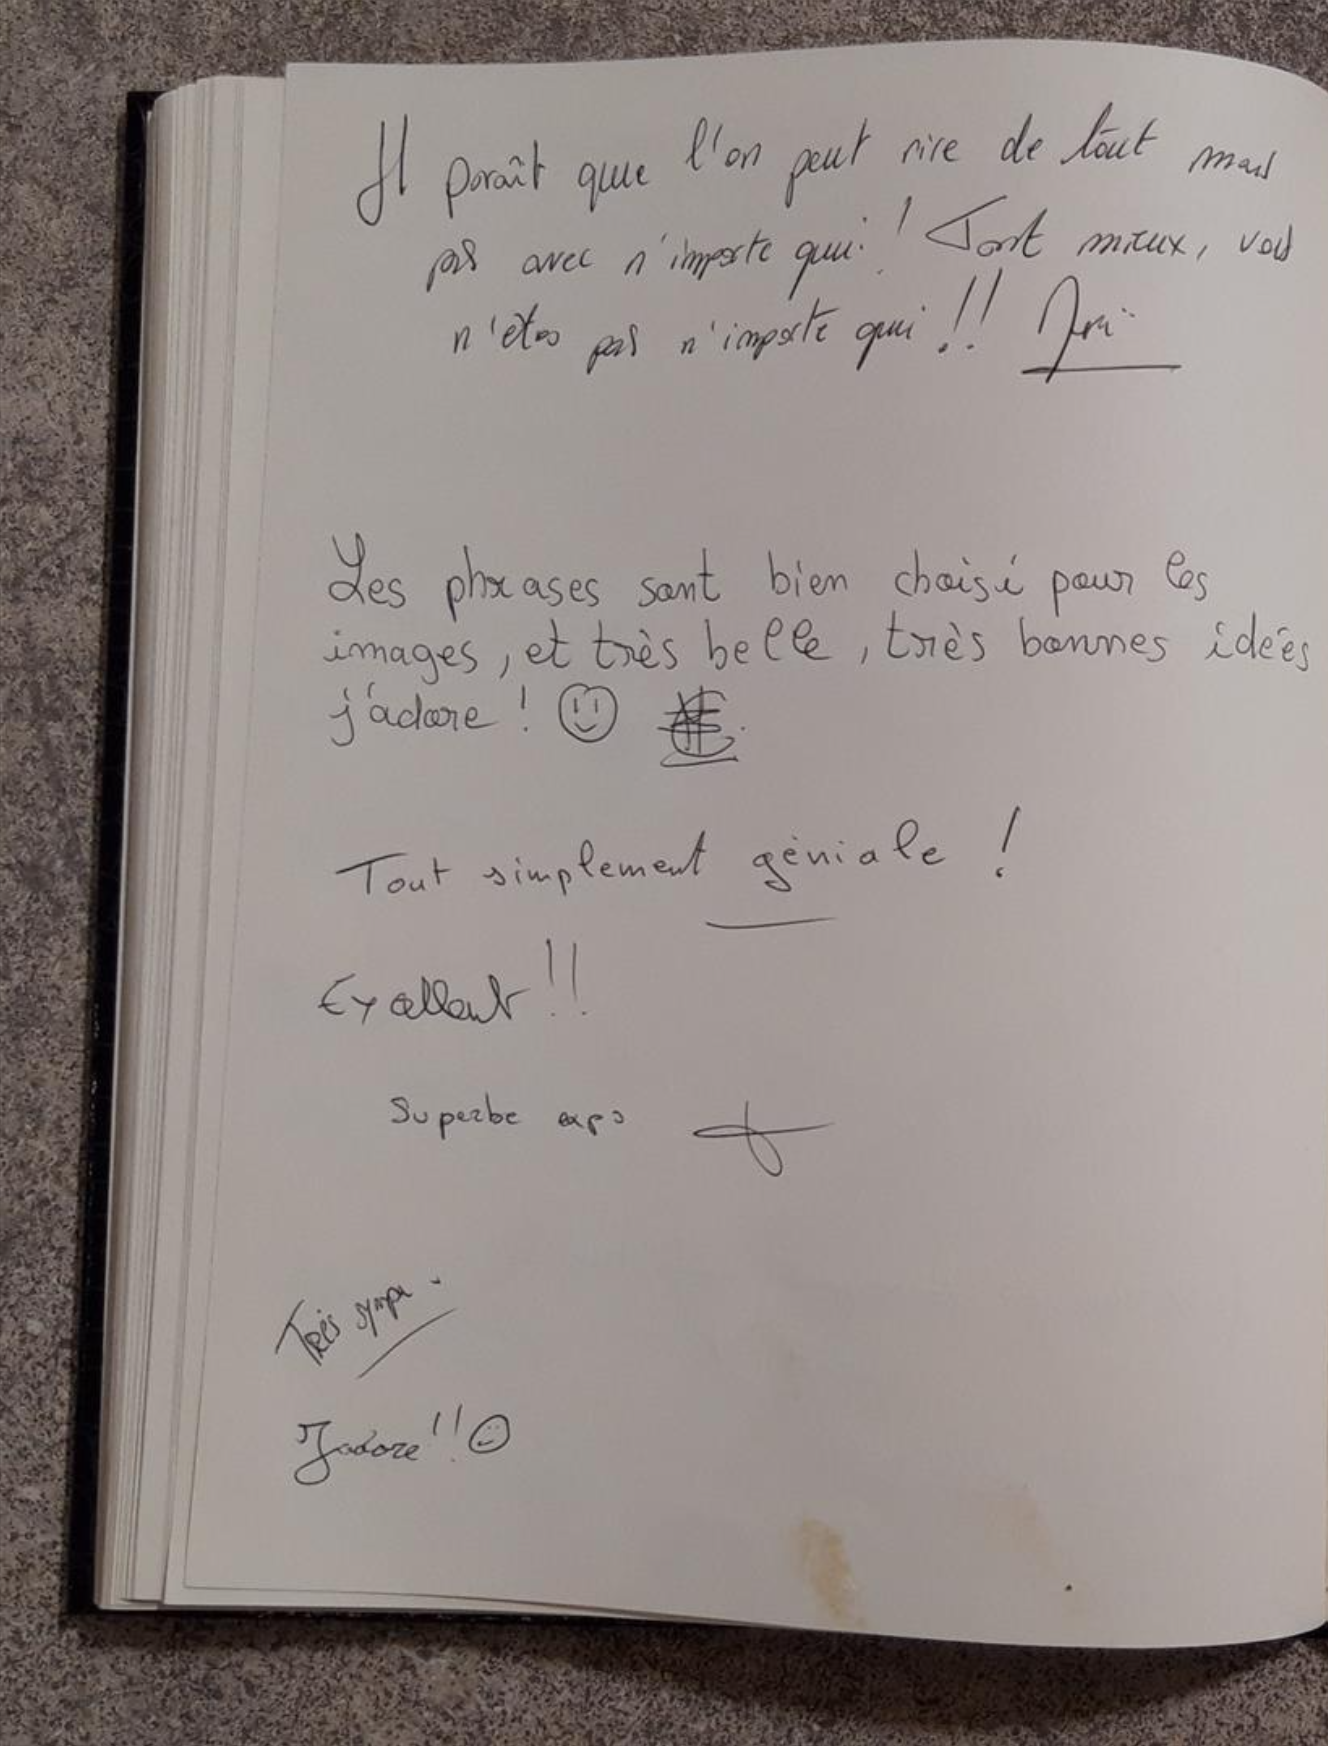 Il paraît que l'on peut rire de tout mais
pas avec n'importe qui ! Tant mieux, vous
n'êtes pas n'importe qui !!
Les phrases sont bien choisi pour les
images, et très belle, très bonnes idées
j'adore !
Tout simplement géniale !
Excellent !!
Superbe expo
Très sympa
J'adore !!